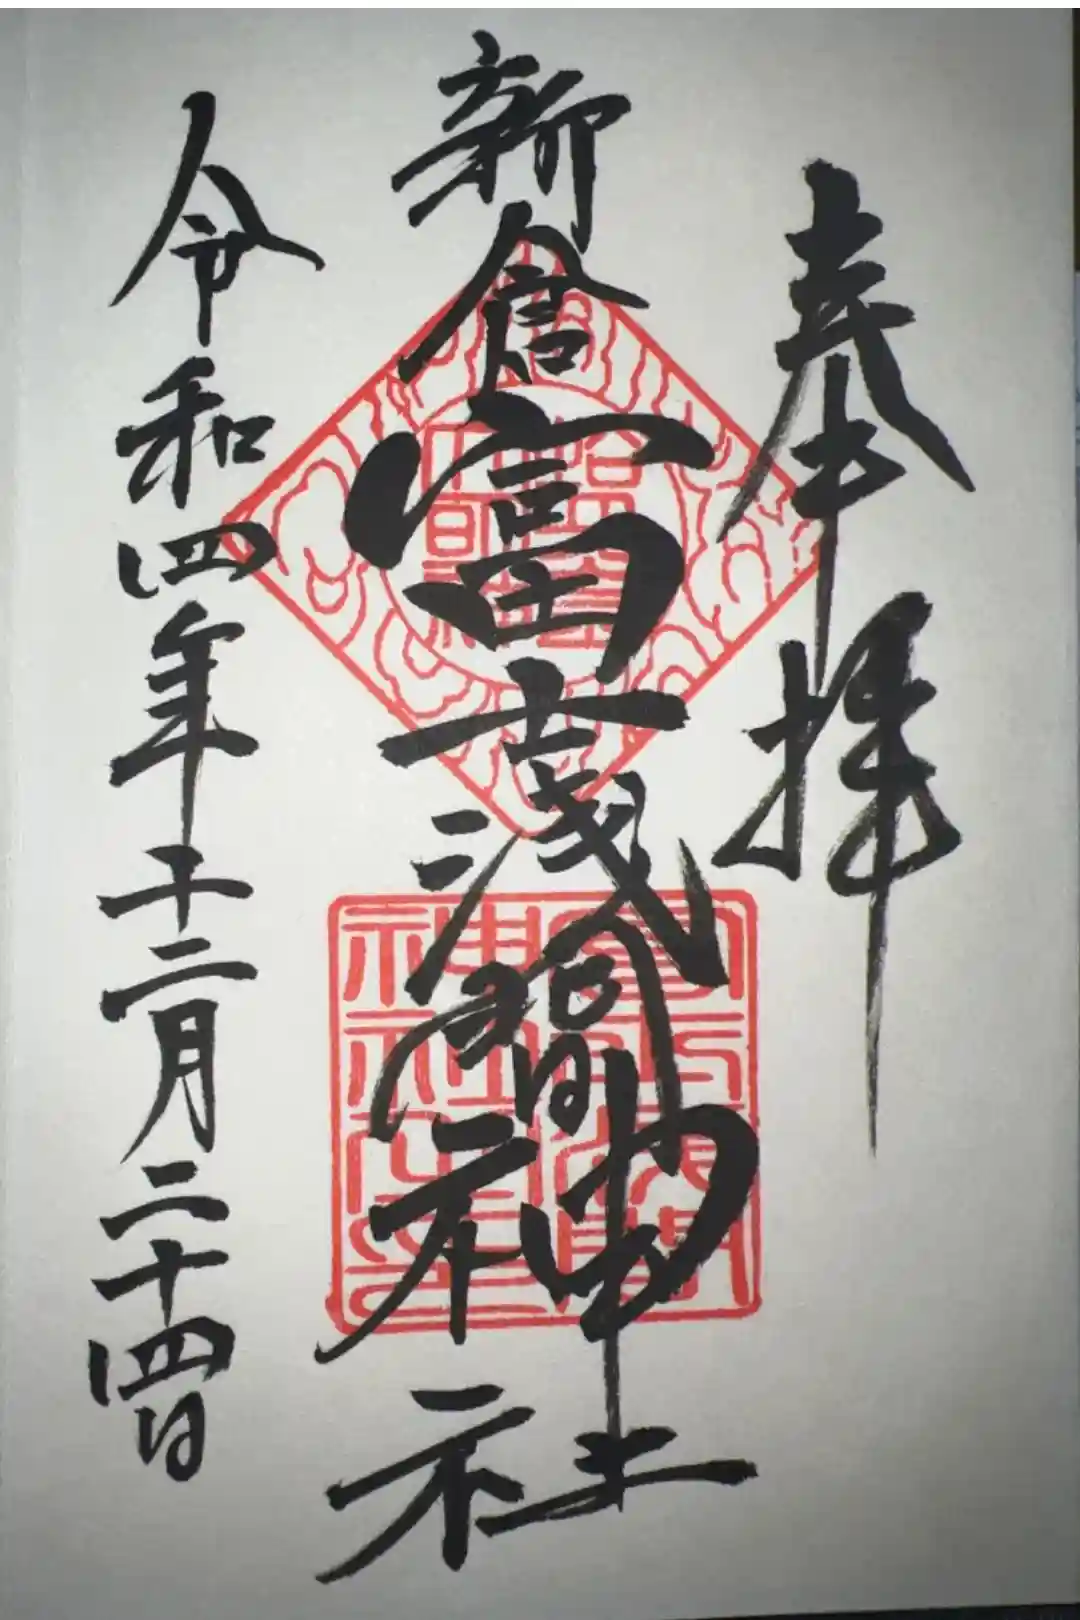 奉拝
新倉富士浅間神社
令和四年十二月二十四日